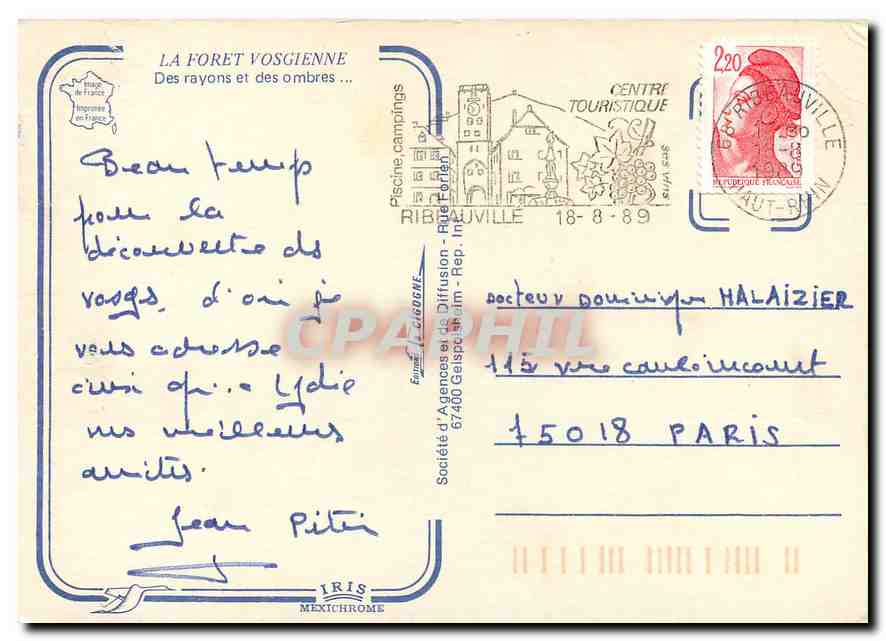 LA FORET VOSGIENNE
Des rayons et des ombres ...
Image
de France
Imprimée
en France
Beau temps
pour la
découverte des
vosges, d'où je
vous adresse
ainsi qu'à Lydie
mes meilleures
amitiés.
Jean
IRIS
MEXICHROME
Editions la CIGOGNE
Société d'Agences et de Diffusion - Rue Forlen
67400 Geispolsheim - Rep. Int.
Piscine, campings
CENTRE
TOURISTIQUE
ses vins
RIBEAUVILLE 18-8-89
2,20
REPUBLIQUE FRANÇAISE
68 RIBEAUVILLE
HAUT-RHIN
Docteur Dominique MALAIZIER
115 rue caulaincourt
75018 PARIS
CPAPHIL